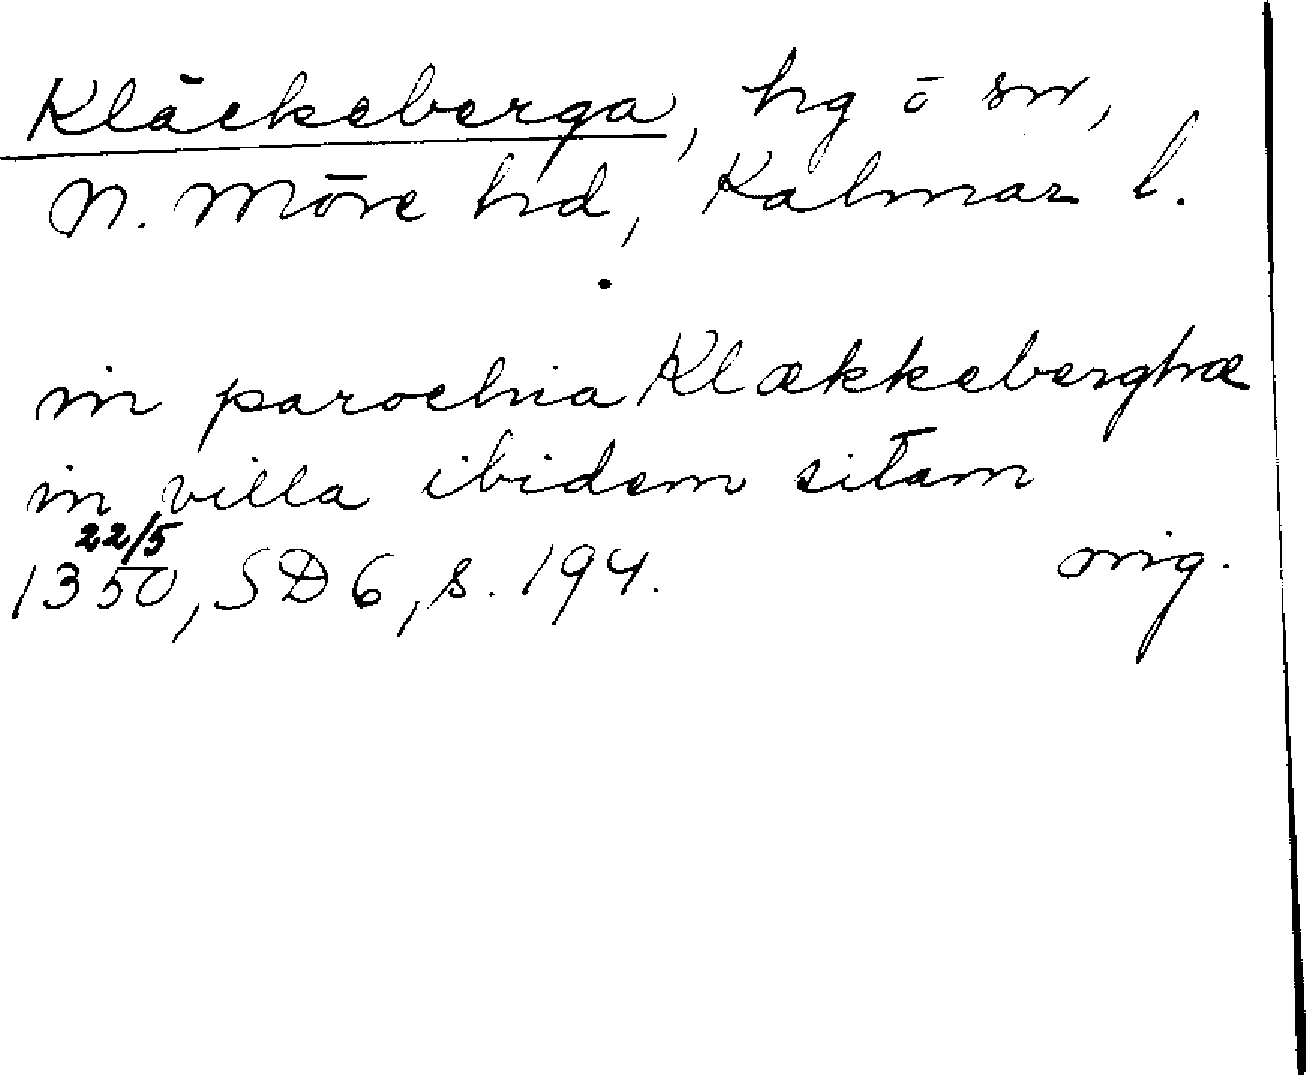 Kläckeberga, hg ō sn,
N. Möre hd, Kalmar l.
in parochia Klækkeberghæ
in villa ibidem sitam
22/5
1350, SD 6, s. 194. orig.